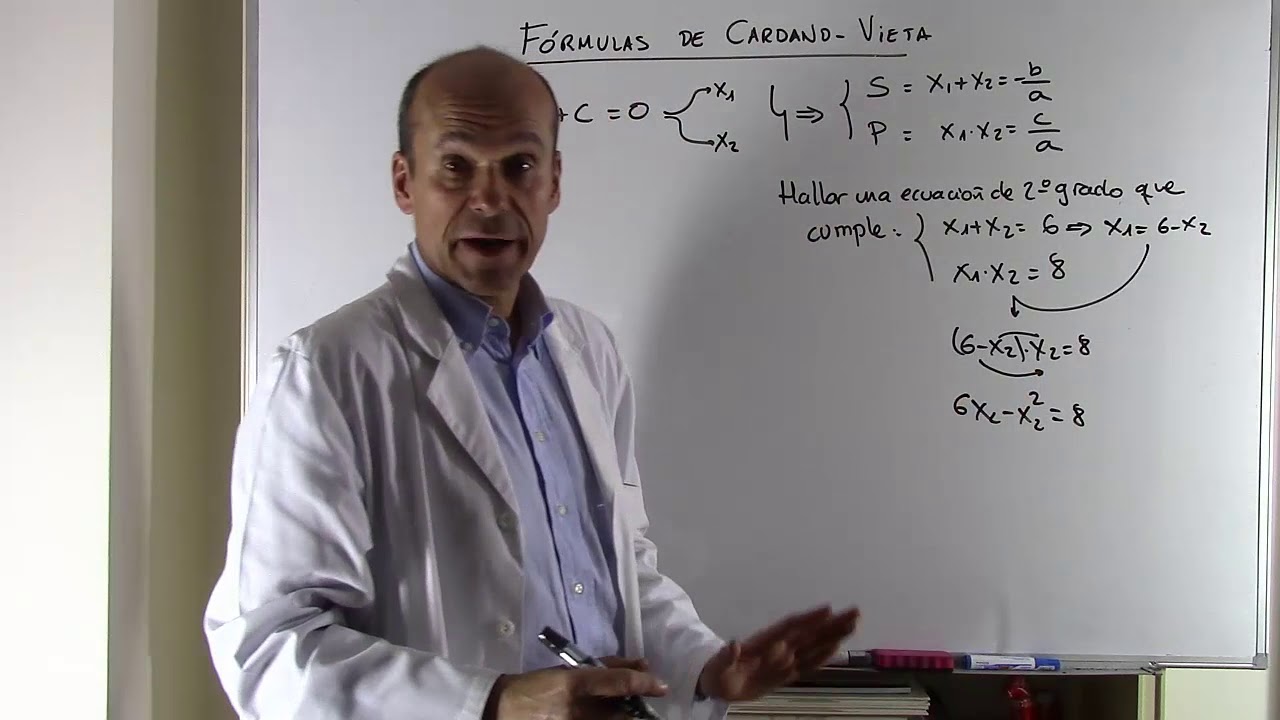 FÓRMULAS DE CARDANO-VIETA
+C = 0 x1 x2 } ⇒ { S = x1+x2 = -b/a
P = x1·x2 = c/a
Hallar una ecuación de 2º grado que
cumple: { x1+x2 = 6 ⇒ x1 = 6-x2
x1·x2 = 8
(6-x2)·x2=8
6x2-x2²=8